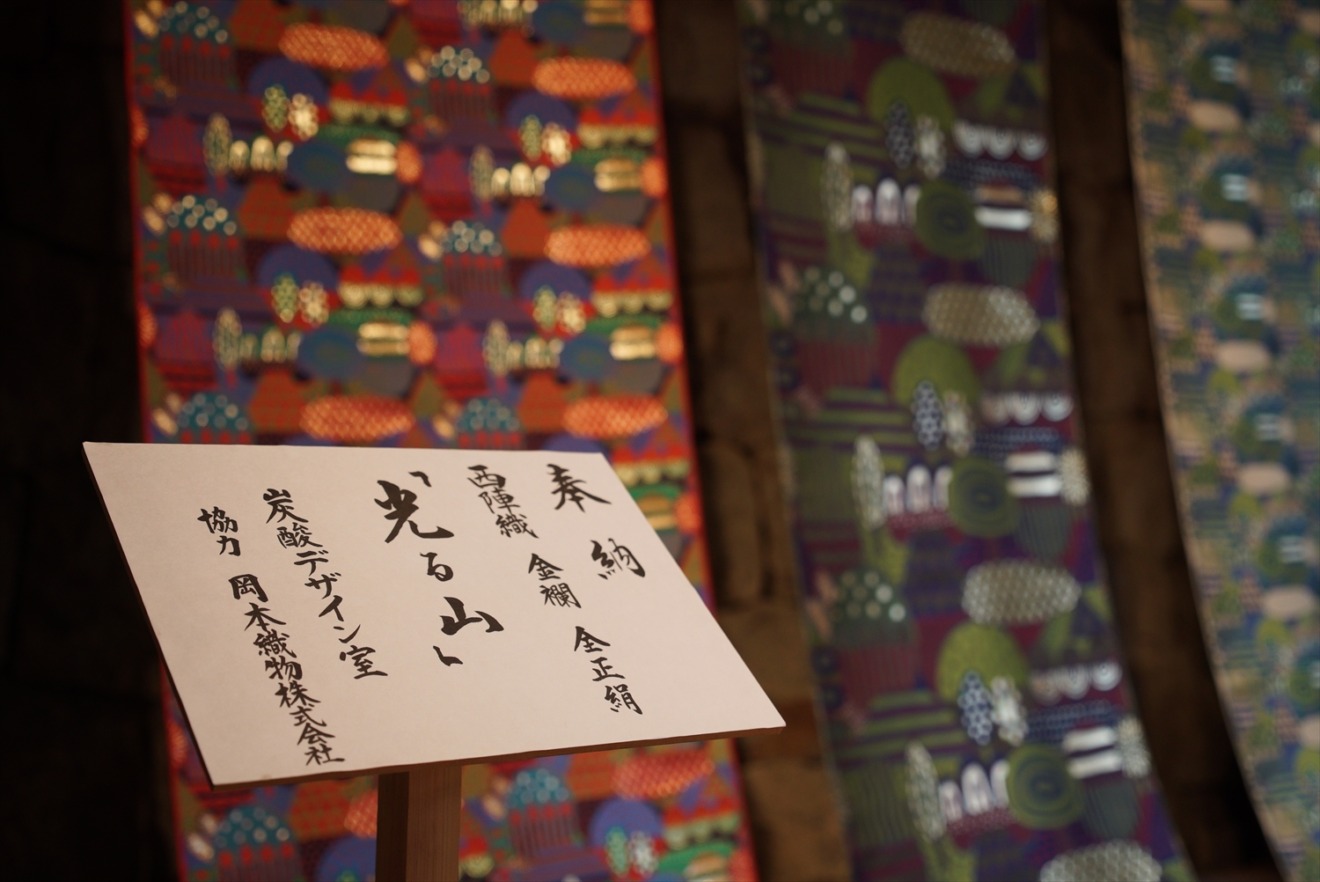 奉納
西陣織 金襴 全正絹
「光る山」
炭酸デザイン室
協力 岡本織物株式会社